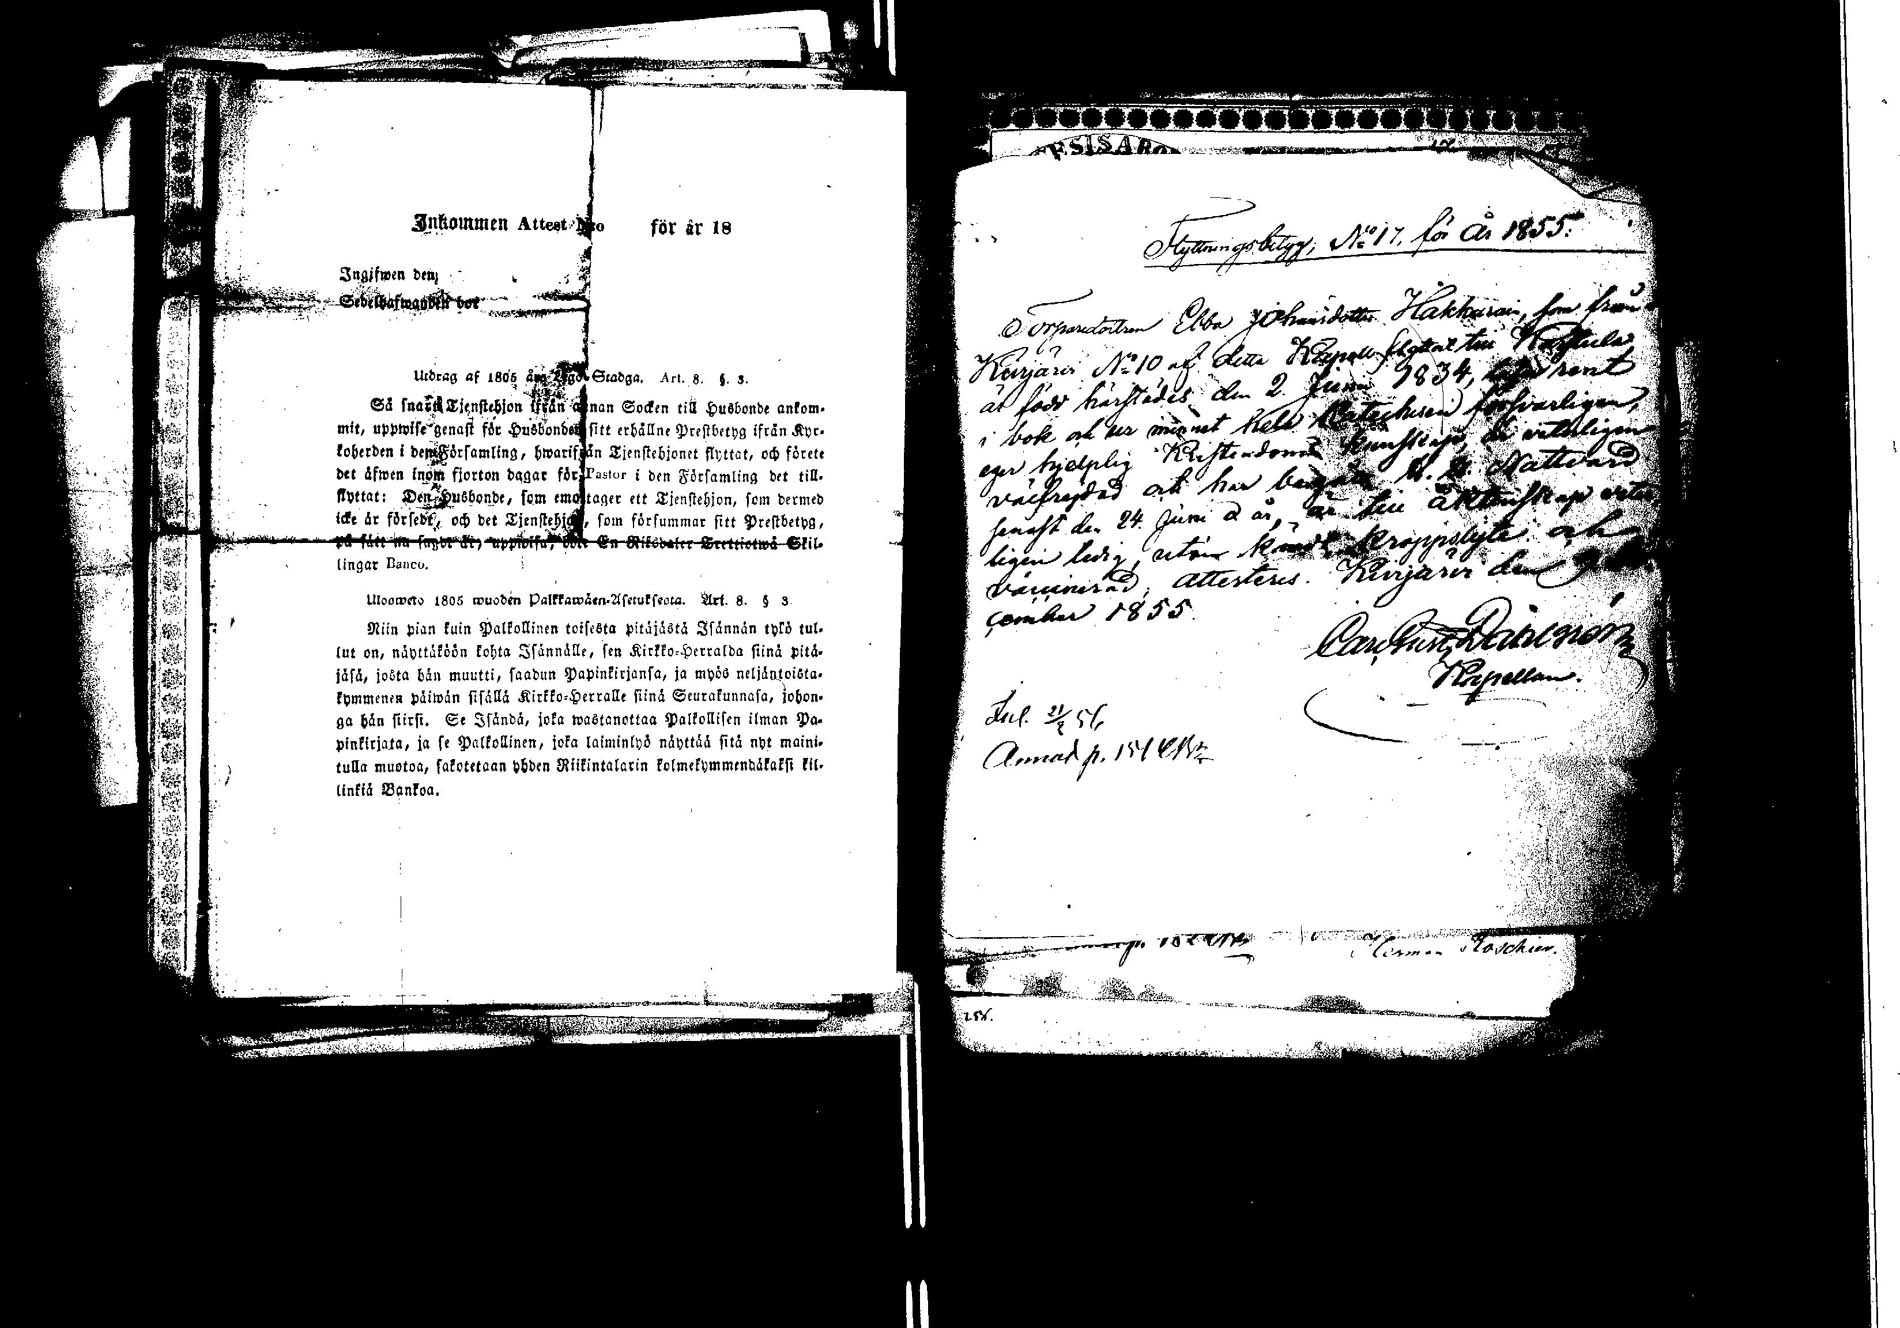 Inkommen Attest Nro för år 18
Ingifwen den
Sedelhafwanden bor
Utdrag af 1805 års Lego-Stadga. Art. 8. §. 3.
Så snart Tjenstehjon ifrån annan Socken till Husbonde ankom-
mit, uppwise genast för Husbonden sitt erhållne Prestbetyg ifrån Kyr-
koherden i den Församling, hwarifrån Tjenstehjonet flyttat, och förete
det äfwen inom fjorton dagar för Pastor i den Församling det till-
flyttat: Den Husbonde, som emottager ett Tjenstehjon, som dermed
icke är försedt, och det Tjenstehjon, som försummar sitt Prestbetyg,
på sätt nu sagdt är, uppwisa, böte En Riksdaler Trettiotwå Skil-
lingar Banco.
Ulosweto 1805 wuoden Palkkawäen-Asetuksesta. Art. 8. § 3
Niin pian kuin Palkollinen toisesta pitäjästä Isännän tykö tul-
lut on, näyttäköön kohta Isännälle, sen Kirkko-Herralda siinä pitä-
jäsä, josta hän muutti, saadun Papinkirjansa, ja myös neljäntoista-
kymmenen päiwän sisällä Kirkko-Herralle siinä Seurakunnasa, johon-
ga hän siirsi. Se Isändä, joka wastanottaa Palkollisen ilman Pa-
pinkirjata, ja se Palkollinen, joka laiminlyö näyttää sitä nyt maini-
tulla muotoa, sakotetaan yhden Riikintalarin kolmekymmendäkaksi kil-
linkiä Bankoa.
Flyttningsbetyg, No 17. för År 1855.
Torparedottren Ebba Johansdotter Hakkarain, som från
Kivijärvi No 10 af detta Kapell flyttat till
är född härstädes den 2 Juni 1834, rent
i bok och ur minnet hela Katechesen försvarligen,
eger hjelplig Kristendoms kunskap, är veterligen
välfrejdad och har H. H. Nattvard
senast den 24 Juni d. år, är till äktenskap veter
ligen ledig, utan kändt kroppslyte och
vaccinerad, attesteras. Kivijärvi den 9 De
cember 1855.
Carl Gust.
Kapellan.
56
Annad p. 151
Herman Roschier.